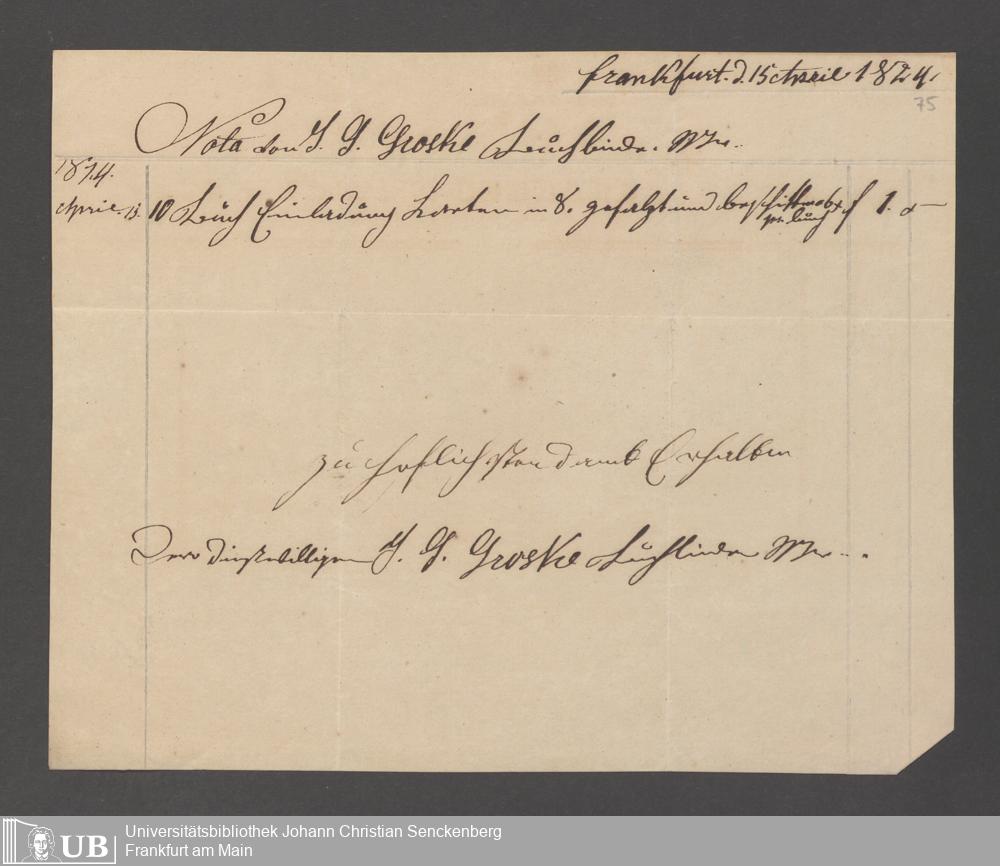 Frankfurt. d. 15 April 1824.
75
Nota von J. G. Groske Buchbinder. Mstr.
1824.
April. 13. 10 Buch Einladung Karten in 8. gefalzt und beschnitten
pr. buch f 1. x —
zu höflichsten danck Erhalten
Dero dienstwilligen J. G. Groske Buchbinder Mstr.
UB
Universitätsbibliothek Johann Christian Senckenberg
Frankfurt am Main